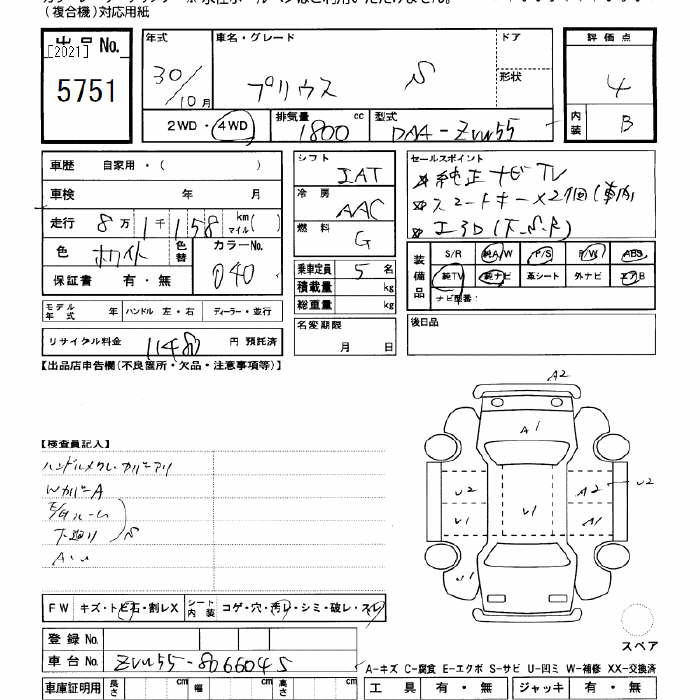 (複合機)対応用紙
出品No.
[2021]
5751
年式
30/10月
車名・グレード
プリウス S
ドア
形状
評価点
4
内装
B
2WD・4WD
排気量
1800 cc
型式
DAA-ZVW55
車歴 自家用・( )
車検 年 月
走行 8万1千158 km マイル( )
色 ホワイト
色替
カラーNo.
040
保証書 有・無
シフト
IAT
冷房
AAC
燃料
G
乗車定員 5名
積載量 kg
総重量 kg
名変期限
月 日
セールスポイント
純正ナビTV
スマートキー×2個(車内)
装備品
S/R 純A/W P/S P/W ABS
純TV 純ナビ 革シート 外ナビ エアB
ナビ型番:
後日品
モデル年式 年
ハンドル 左・右
ディーラー・並行
リサイクル料金 円 預託済
【出品店申告欄(不良箇所・欠品・注意事項等)】
【検査員記入】
WカバーA
下廻りS
A2
A1
U2
A2
U2
U1
U1
A1
U1
スペア
FW キズ・トビ石・割レX
シート内装 コゲ・穴・汚レ・シミ・破レ・スレ
登録No.
車台No. ZVW55-8066045
A-キズ C-腐食 E-エクボ S-サビ U-凹ミ W-補修 XX-交換済
車庫証明用 長さ cm 幅 cm 高さ cm
工具 有・無 ジャッキ 有・無